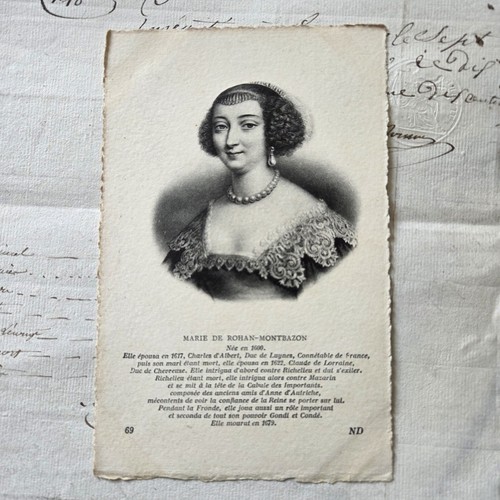 le Sept
MARIE DE ROHAN-MONTBAZON
Née en 1600.
Elle épousa en 1617, Charles d'Albert, Duc de Luynes, Connétable de France,
puis son mari étant mort, elle épousa en 1622, Claude de Lorraine,
Duc de Chevreuse. Elle intrigua d'abord contre Richelieu et dut s'exiler.
Richelieu étant mort, elle intrigua alors contre Mazarin
et se mit à la tête de la Cabale des Importants,
composée des anciens amis d'Anne d'Autriche,
mécontents de voir la confiance de la Reine se porter sur lui.
Pendant la Fronde, elle joua aussi un rôle important
et seconda de tout son pouvoir Gondi et Condé.
Elle mourut en 1679.
69 ND